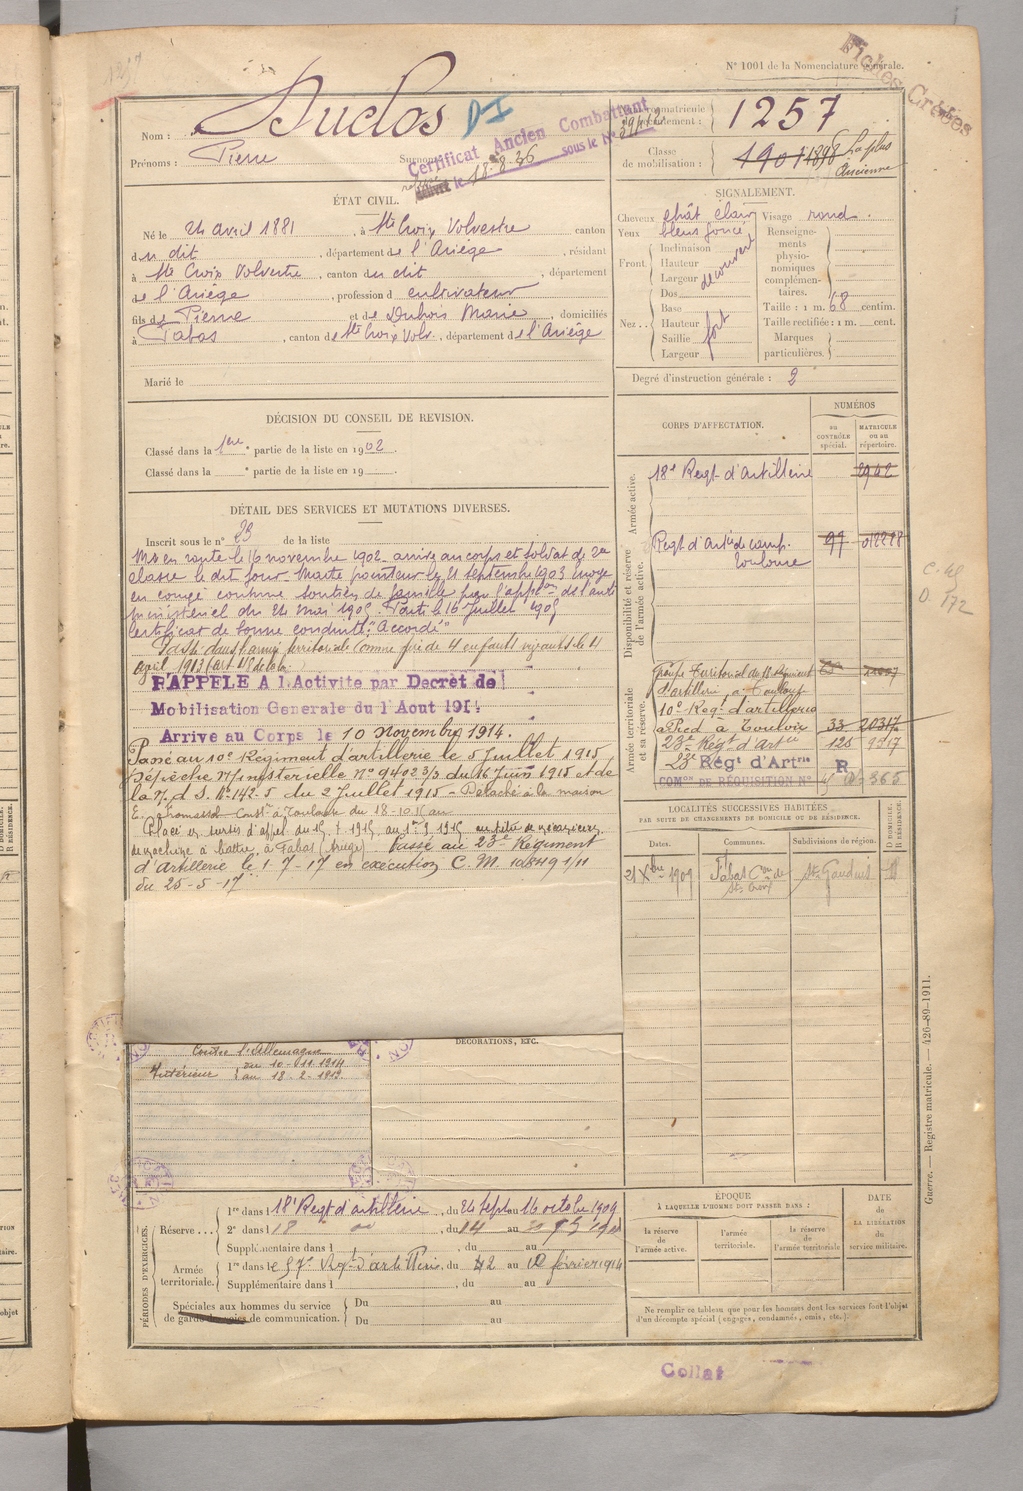 N° 1001 de la Nomenclature générale.
Fiches Créées
Nom : Duclos
DI
Prénoms : Pierre
Surnoms
Certificat Ancien Combattant
le 18-8-36 sous le N°
Numéro matricule du recrutement : 1257
Classe de mobilisation : 1901 1898 La plus Ancienne
ÉTAT CIVIL.
Né le 24 avril 1881, à Ste Croix Volvestre, canton
du dit, département de l'Ariège, résidant
à Ste Croix Volvestre, canton du dit, département
de l'Ariège, profession d cultivateur
fils de Pierre et de Dubois Marie, domiciliés
à Fabas, canton de Ste Croix Volv., département de l'Ariège
Marié le
SIGNALEMENT.
Cheveux chât clair Visage rond.
Yeux bleus foncé
Front. Inclinaison Hauteur Largeur découvert
Nez... Dos Base Hauteur Saillie Largeur fort
Renseignements physionomiques complémentaires.
Taille : 1 m. 68 centim.
Taille rectifiée : 1 m. cent.
Marques particulières.
Degré d'instruction générale : 2
DÉCISION DU CONSEIL DE REVISION.
Classé dans la 1ere partie de la liste en 1902.
Classé dans la ° partie de la liste en 19
DÉTAIL DES SERVICES ET MUTATIONS DIVERSES.
Inscrit sous le n° 23 de la liste
Mis en route le 16 novembre 1902. arrivé au corps et soldat de 2e
classe le dit jour. Maitre pointeur le 21 septembre 1903 Envoyé
en congé comme soutien de famille pour l'appl.on de l'arrêté
ministériel du 24 mai 1905. Parti le 16 Juillet 1905
Certificat de bonne conduite "Accordé"
Passé dans l'armée territoriale comme père de 4 enfants vivants le 4
avril 1913
RAPPELÉ A l'Activité par Décret de
Mobilisation Générale du 1 Août 1914
Arrivé au Corps le 10 Novembre 1914.
Passé au 10e Régiment d'artillerie le 5 Juillet 1915
Dépêche Ministerielle N° 9402 3/3 du 16 Juin 1915 et de
la N. d S. N° 142-5 du 2 Juillet 1915 - Détaché à la maison
à Toulouse du 18-10-15 au
Placé en sursis d'appel du
machine à battre, à Fabas (Ariège). Passé au 23e Régiment
d'Artillerie le 1-7-17 en exécution C.M. 10849 1/11
du 25-5-17
Contre l'Allemagne
Intérieur du 10-11-1914
au 18-2-1919
DÉCORATIONS, ETC.
CORPS D'AFFECTATION.
NUMÉROS
au CONTRÔLE spécial.
MATRICULE ou au répertoire.
Armée active.
18e Regt d'artillerie 2942
Disponibilité et réserve de l'armée active.
Regt d'Artie de camp. Toulouse 97 012278
Armée territoriale et sa réserve.
Groupe Territorial du 18 Régiment
d'artillerie, à Toulouse
10e Regt d'artillerie
à Pied à Toulon 33 20317
23e Regt d'Artie 125 9917
23e Régt d'Artrie R
COMon DE RÉQUISITION N° 365
LOCALITÉS SUCCESSIVES HABITÉES
PAR SUITE DE CHANGEMENTS DE DOMICILE OU DE RÉSIDENCE.
Dates. Communes. Subdivisions de région. D DOMICILE. R RÉSIDENCE.
21 Xbre 1909 Fabas Con de Ste Croix St Gaudens
PÉRIODES D'EXERCICES.
Réserve... 1re dans l 18e Regt d'artillerie, du 24 sept au 16 octobre 1909
2e dans l 18, du 14 au
Supplémentaire dans l, du au
Armée territoriale. 1re dans le 57e Regt d'artillerie, du 2 au 10 février 1914
Supplémentaire dans l, du au
Spéciales aux hommes du service de garde des voies de communication. Du au
Du au
ÉPOQUE
À LAQUELLE L'HOMME DOIT PASSER DANS :
la réserve de l'armée active. l'armée territoriale. la réserve de l'armée territoriale
DATE de LA LIBÉRATION du service militaire.
Ne remplir ce tableau que pour les hommes dont les services font l'objet
d'un décompte spécial (engagés, condamnés, omis, etc.).
Guerre. — Registre matricule. — 426-89-1911.
D. 172
Collat